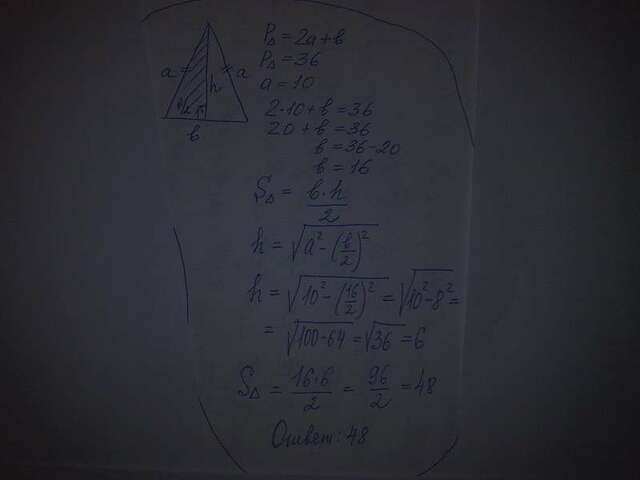 P△ = 2a + b
P△ = 36
a = 10
2·10 + b = 36
20 + b = 36
b = 36 - 20
b = 16
S△ = b·h/2
h = √(a² - (b/2)²)
h = √(10² - (16/2)²) = √(10² - 8²) =
= √(100-64) = √36 = 6
S△ = 16·6/2 = 96/2 = 48
Ответ: 48
a
a
h
b/2
b